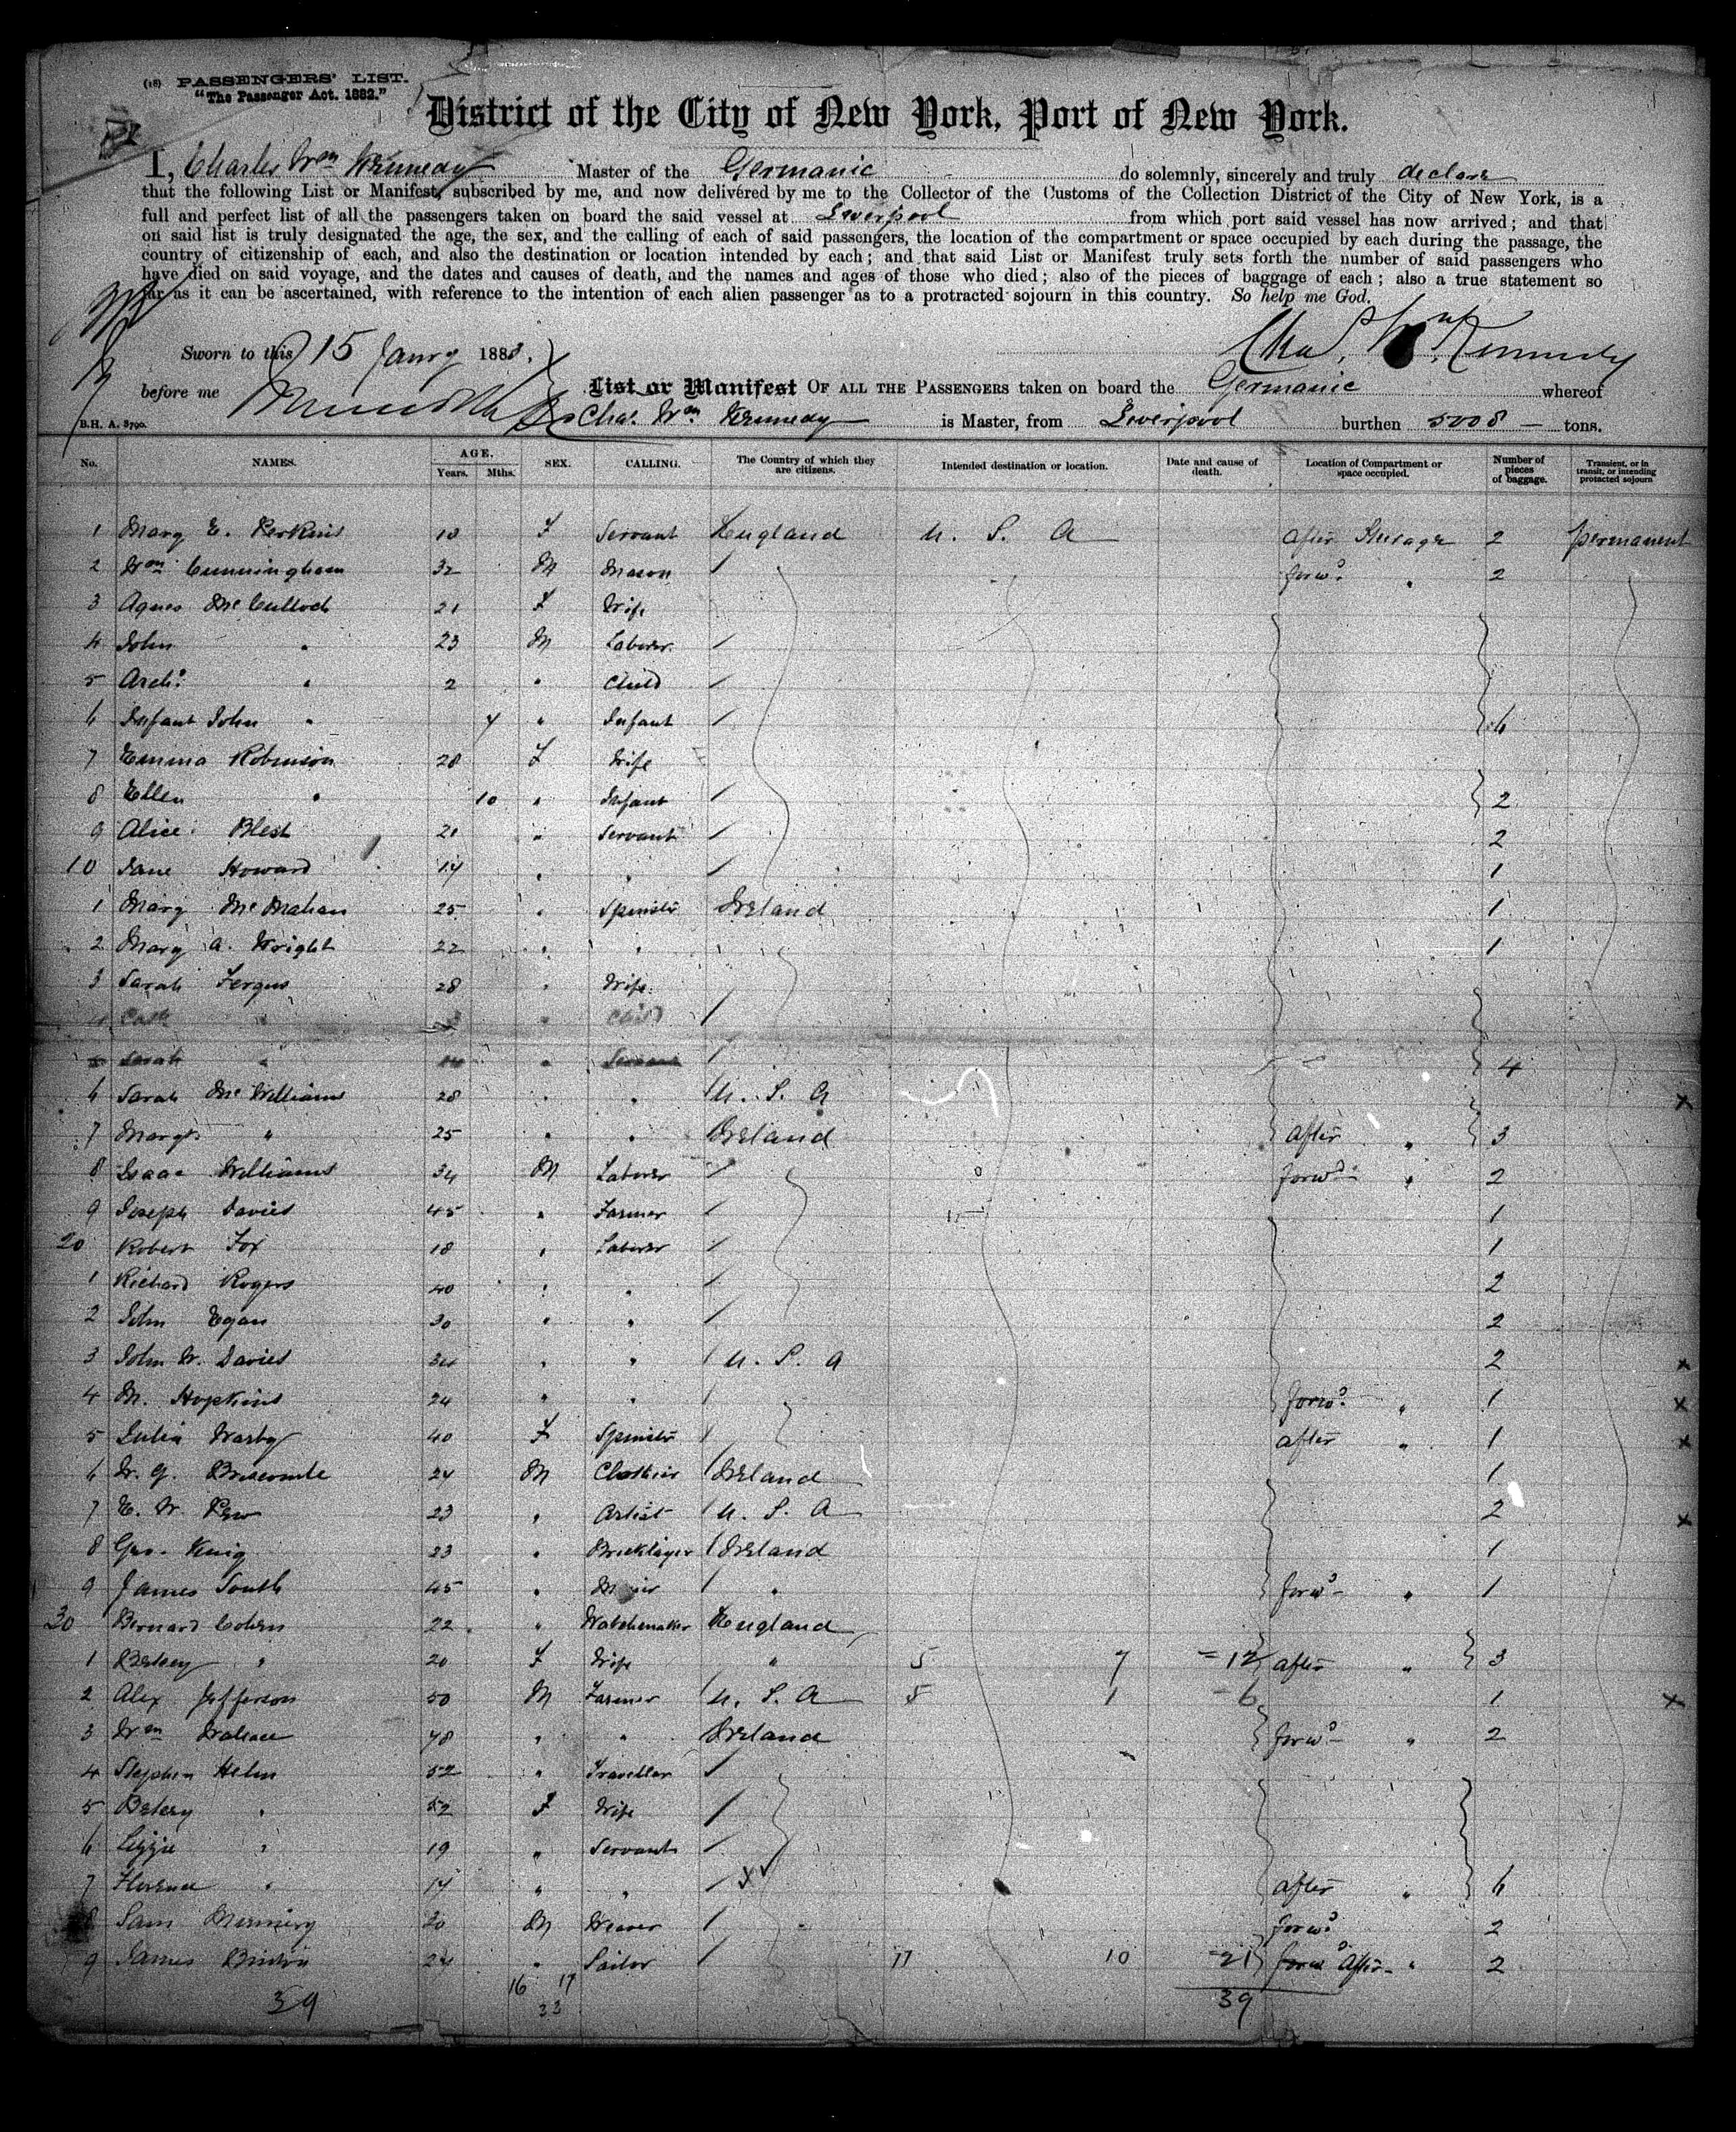 (18) PASSENGERS' LIST.
"The Passenger Act. 1882."
District of the City of New York, Port of New York.
I, Charles Wm Kennedy Master of the Germanic do solemnly, sincerely and truly declare
that the following List or Manifest, subscribed by me, and now delivered by me to the Collector of the Customs of the Collection District of the City of New York, is a
full and perfect list of all the passengers taken on board the said vessel at Liverpool from which port said vessel has now arrived; and that
on said list is truly designated the age, the sex, and the calling of each of said passengers, the location of the compartment or space occupied by each during the passage, the
country of citizenship of each, and also the destination or location intended by each; and that said List or Manifest truly sets forth the number of said passengers who
have died on said voyage, and the dates and causes of death, and the names and ages of those who died; also of the pieces of baggage of each; also a true statement so
far as it can be ascertained, with reference to the intention of each alien passenger as to a protracted sojourn in this country. So help me God.
Chas. Wm Kennedy
Sworn to this 15 Janry 1883.
before me
List or Manifest OF ALL THE PASSENGERS taken on board the Germanic whereof
B.H. A. 3790. Chas. Wm Kennedy is Master, from Liverpool burthen 5008 tons.
No. NAMES. AGE. Years. Mths. SEX. CALLING. The Country of which they are citizens. Intended destination or location. Date and cause of death. Location of Compartment or space occupied. Number of pieces of baggage. Transient, or in transit, or intending protacted sojourn
1 Mary E. Perkins F Servant England U. S. A after Steerage 2 permanent
2 Wm Cunningham 32 M Mason / forwd " 2
3 Agnes McCulloch 21 F Wife
4 John " 23 M Laborer /
5 Archd " 2 " Child /
6 Infant John " " Infant / 6
7 Emma Robinson 28 F Wife
8 Ellen " 10 " Infant / 2
9 Alice Blest 21 " Servant / 2
10 Jane Howard 14 " " / 1
1 Mary McMahan 25 " Spinstr Ireland 1
2 Mary A. Wright 22 " " 1
3 Sarah Fergus 28 " Wife
4 Cath " " Child /
5 Sarah " " / 4
6 Sarah McWilliams 28 " " U. S. A x
7 Margt " 25 " " Ireland after " 3
8 Isaac Williams 34 M Laborer / forwd " 2
9 Joseph Davies 45 " Farmer / 1
20 Robert Fox 18 " Laborer / 1
1 Richard Rogers 40 " " / 2
2 John Egan 30 " " / 2
3 John W. Davies 34 " " U. S. A 2 x
4 M. Hopkins 24 " " / forwd " 1 x
5 Julia 40 F Spinstr / after " 1 x
6 W. G. 24 M Clothier Ireland 1
7 E. W. 23 " Artist U. S. A 2 x
8 Geo. 23 " Bricklayer Ireland 1
9 James South 45 " / " forwd " 1
30 Bernard Cohen 22 " Watchmaker England
1 Betsey " 20 F Wife " 5 7 = 12 after " 3
2 Alex Jefferson 50 M Farmer U. S. A 5 1 6 1 x
3 Wm Wallace 48 " " Ireland forwd " 2
4 Stephen Helm 52 " Traveller /
5 Betsey " 52 F Wife /
6 Lizzie " 19 " Servant /
7 Florence " 14 " " / x after " 6
8 Sam 20 M Weaver / forwd 2
9 James 24 " Sailor / 11 10 21 forwd After " 2
39 16 17 39
33